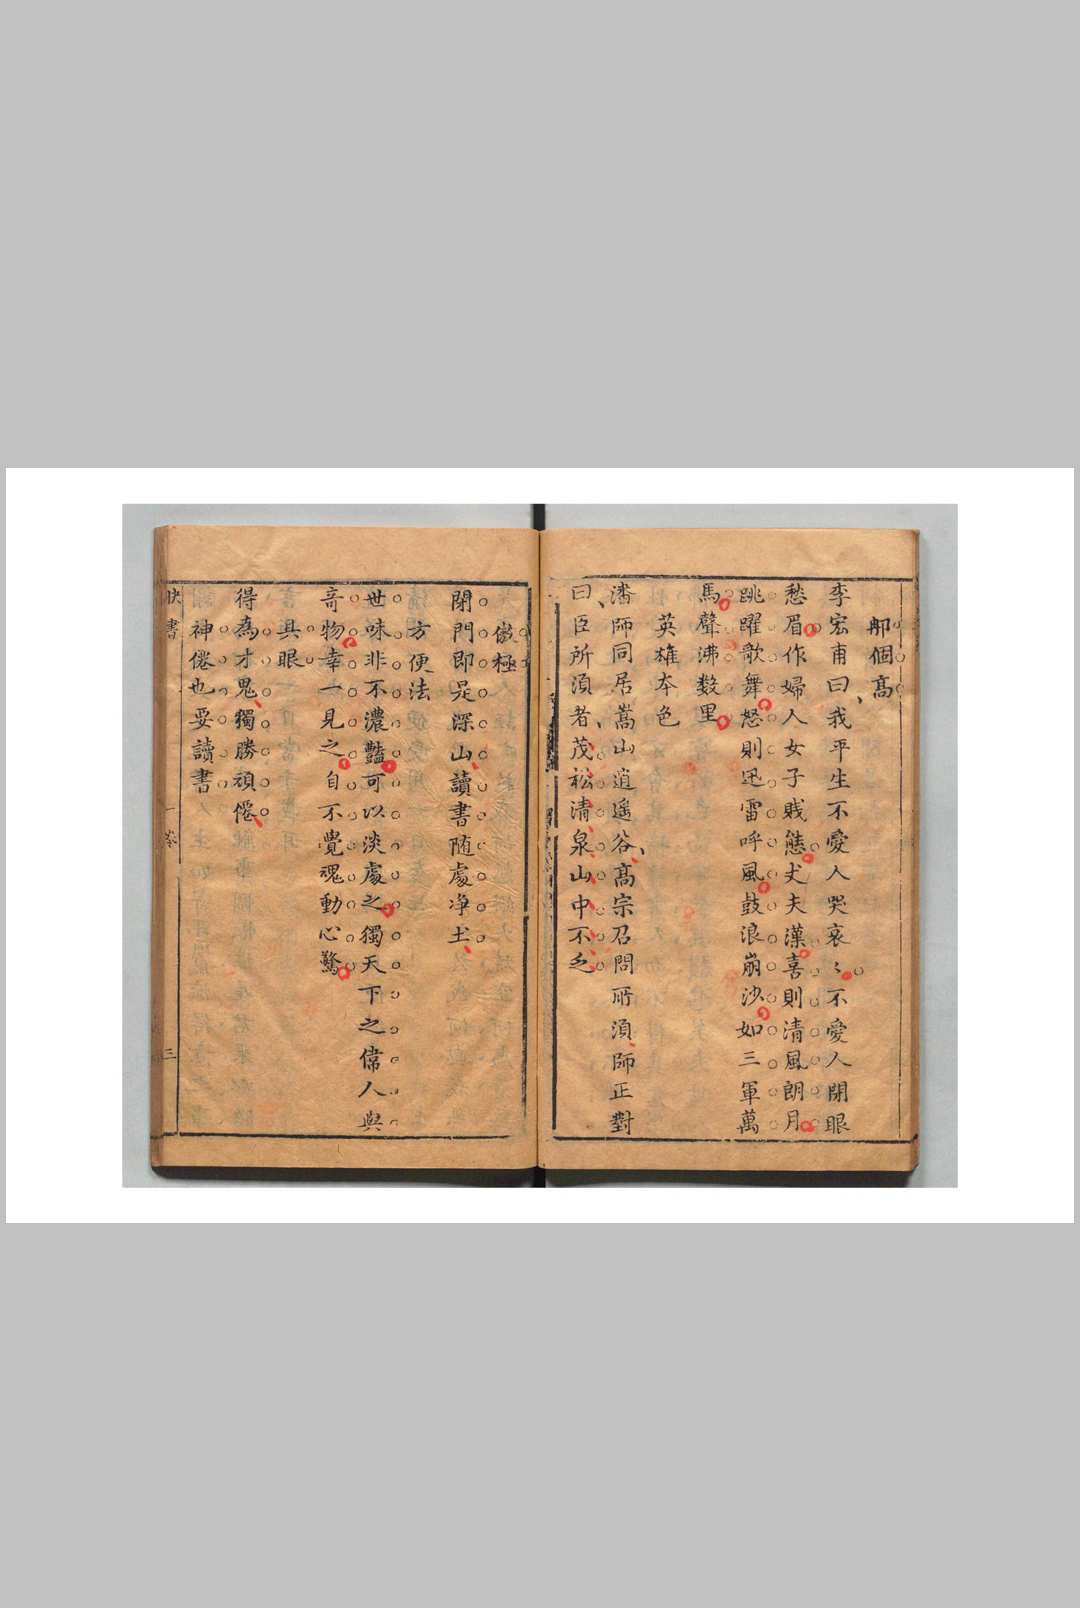 那個高
李宏甫曰我平生不愛人哭哀〻不愛人閉眼
愁眉作婦人女子賤態丈夫漢喜則清風朗月
跳躍歌舞怒則迅雷呼風鼓浪崩沙如三軍萬
馬聲沸数里
英雄本色
潘師同居嵩山逍遥谷高宗召問所湏師正對
曰臣所湏者茂松清泉山中不乏
傲極
閉門即是深山讀書随處净土
方便法
世味非不濃豔可以淡處之獨天下之偉人與
奇物幸一見之自不覺魂動心驚
具眼
得為才鬼獨勝頑僊
神僊也要讀書
快書
卷一
三